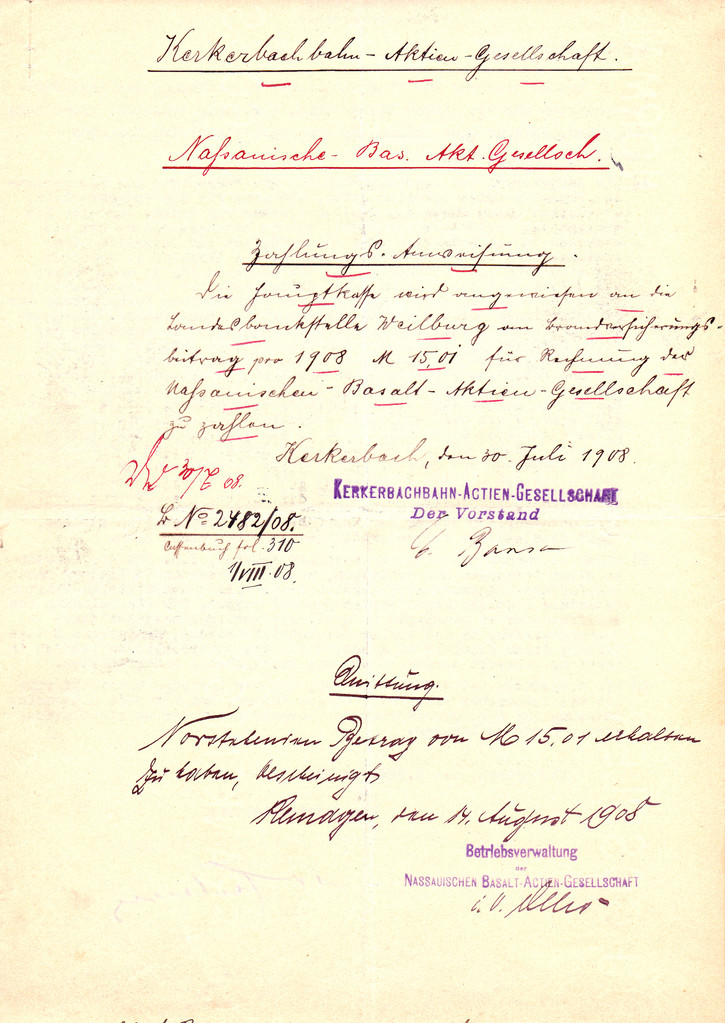 Kerkerbachbahn-Aktien-Gesellschaft.
Naßauische-Bas. Akt. Gesellsch.
Zahlungs-Anweisung.
Die Hauptkasse wird angewiesen an die
Landesbankstelle Weilburg an Brandversicherungs-
beitrag pro 1908 M 15,01 für Rechnung der
Naßauischen-Basalt-Aktien-Gesellschaft
zu zahlen.
Kerkerbach, den 30. Juli 1908.
30/7 08.
KERKERBACHBAHN-ACTIEN-GESELLSCHAFT
Der Vorstand
No 2482/08.
Cassenbuch fol. 310
1/VIII.08.
Quittung.
Vorstehenden Betrag von M 15,01 erhalten
zu haben, bescheinigt
Remagen, den 14. August 1908
Betriebsverwaltung
der
NASSAUISCHEN BASALT-ACTIEN-GESELLSCHAFT
i.V.